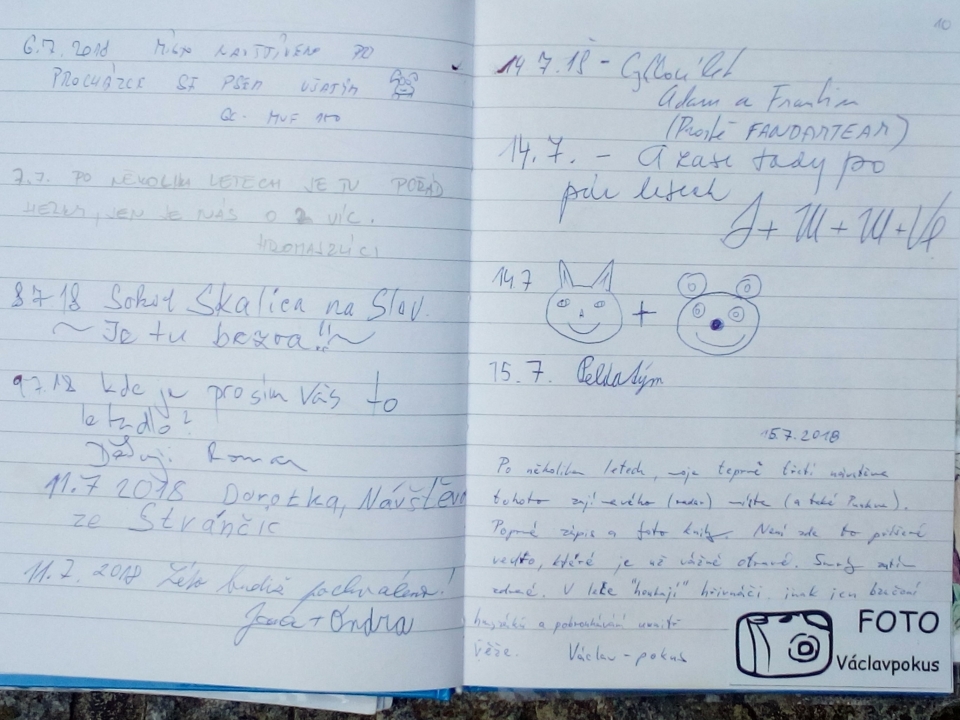 6.7.2018 MÍLO NAVŠTÍVENO PO
PROCHÁZCE SE PSEM UŠATÝM
7.7. PO NĚKOLIKA LETECH JE TU POŘÁD
HEZKY, JEN JE NÁS O 2 VÍC.
8 7 18 Sokol Skalica na Slov.
~ Je tu bezva!! ~
9 7.18 kde je prosím Vás to
letadlo?
Děkuji Roman
11.7 2018 Dorotka, Návštěva
ze Strančic
11.7.2018 Léto budiž pochváleno!
+ Ondra
10
14 7.18 -
Adam a František
(Prostě FANDATEAM)
14.7. - A zase tady po
pár letech
J + M + M + Ve
14.7 +
15.7. Peldatým
15.7.2018
Po několika letech, moje teprve třetí návštěva
tohoto zajímavého (radar) místa (a také Pankrac).
Poprvé zápis a foto knihy. Není zde to příšerné
vedro, které je už vážně otravné. Smrky zatím
zdravé. V lese "houkají" hřivnáči, jinak jen bzučení
a uvnitř
věže. Václav - pokus
FOTO
Václavpokus